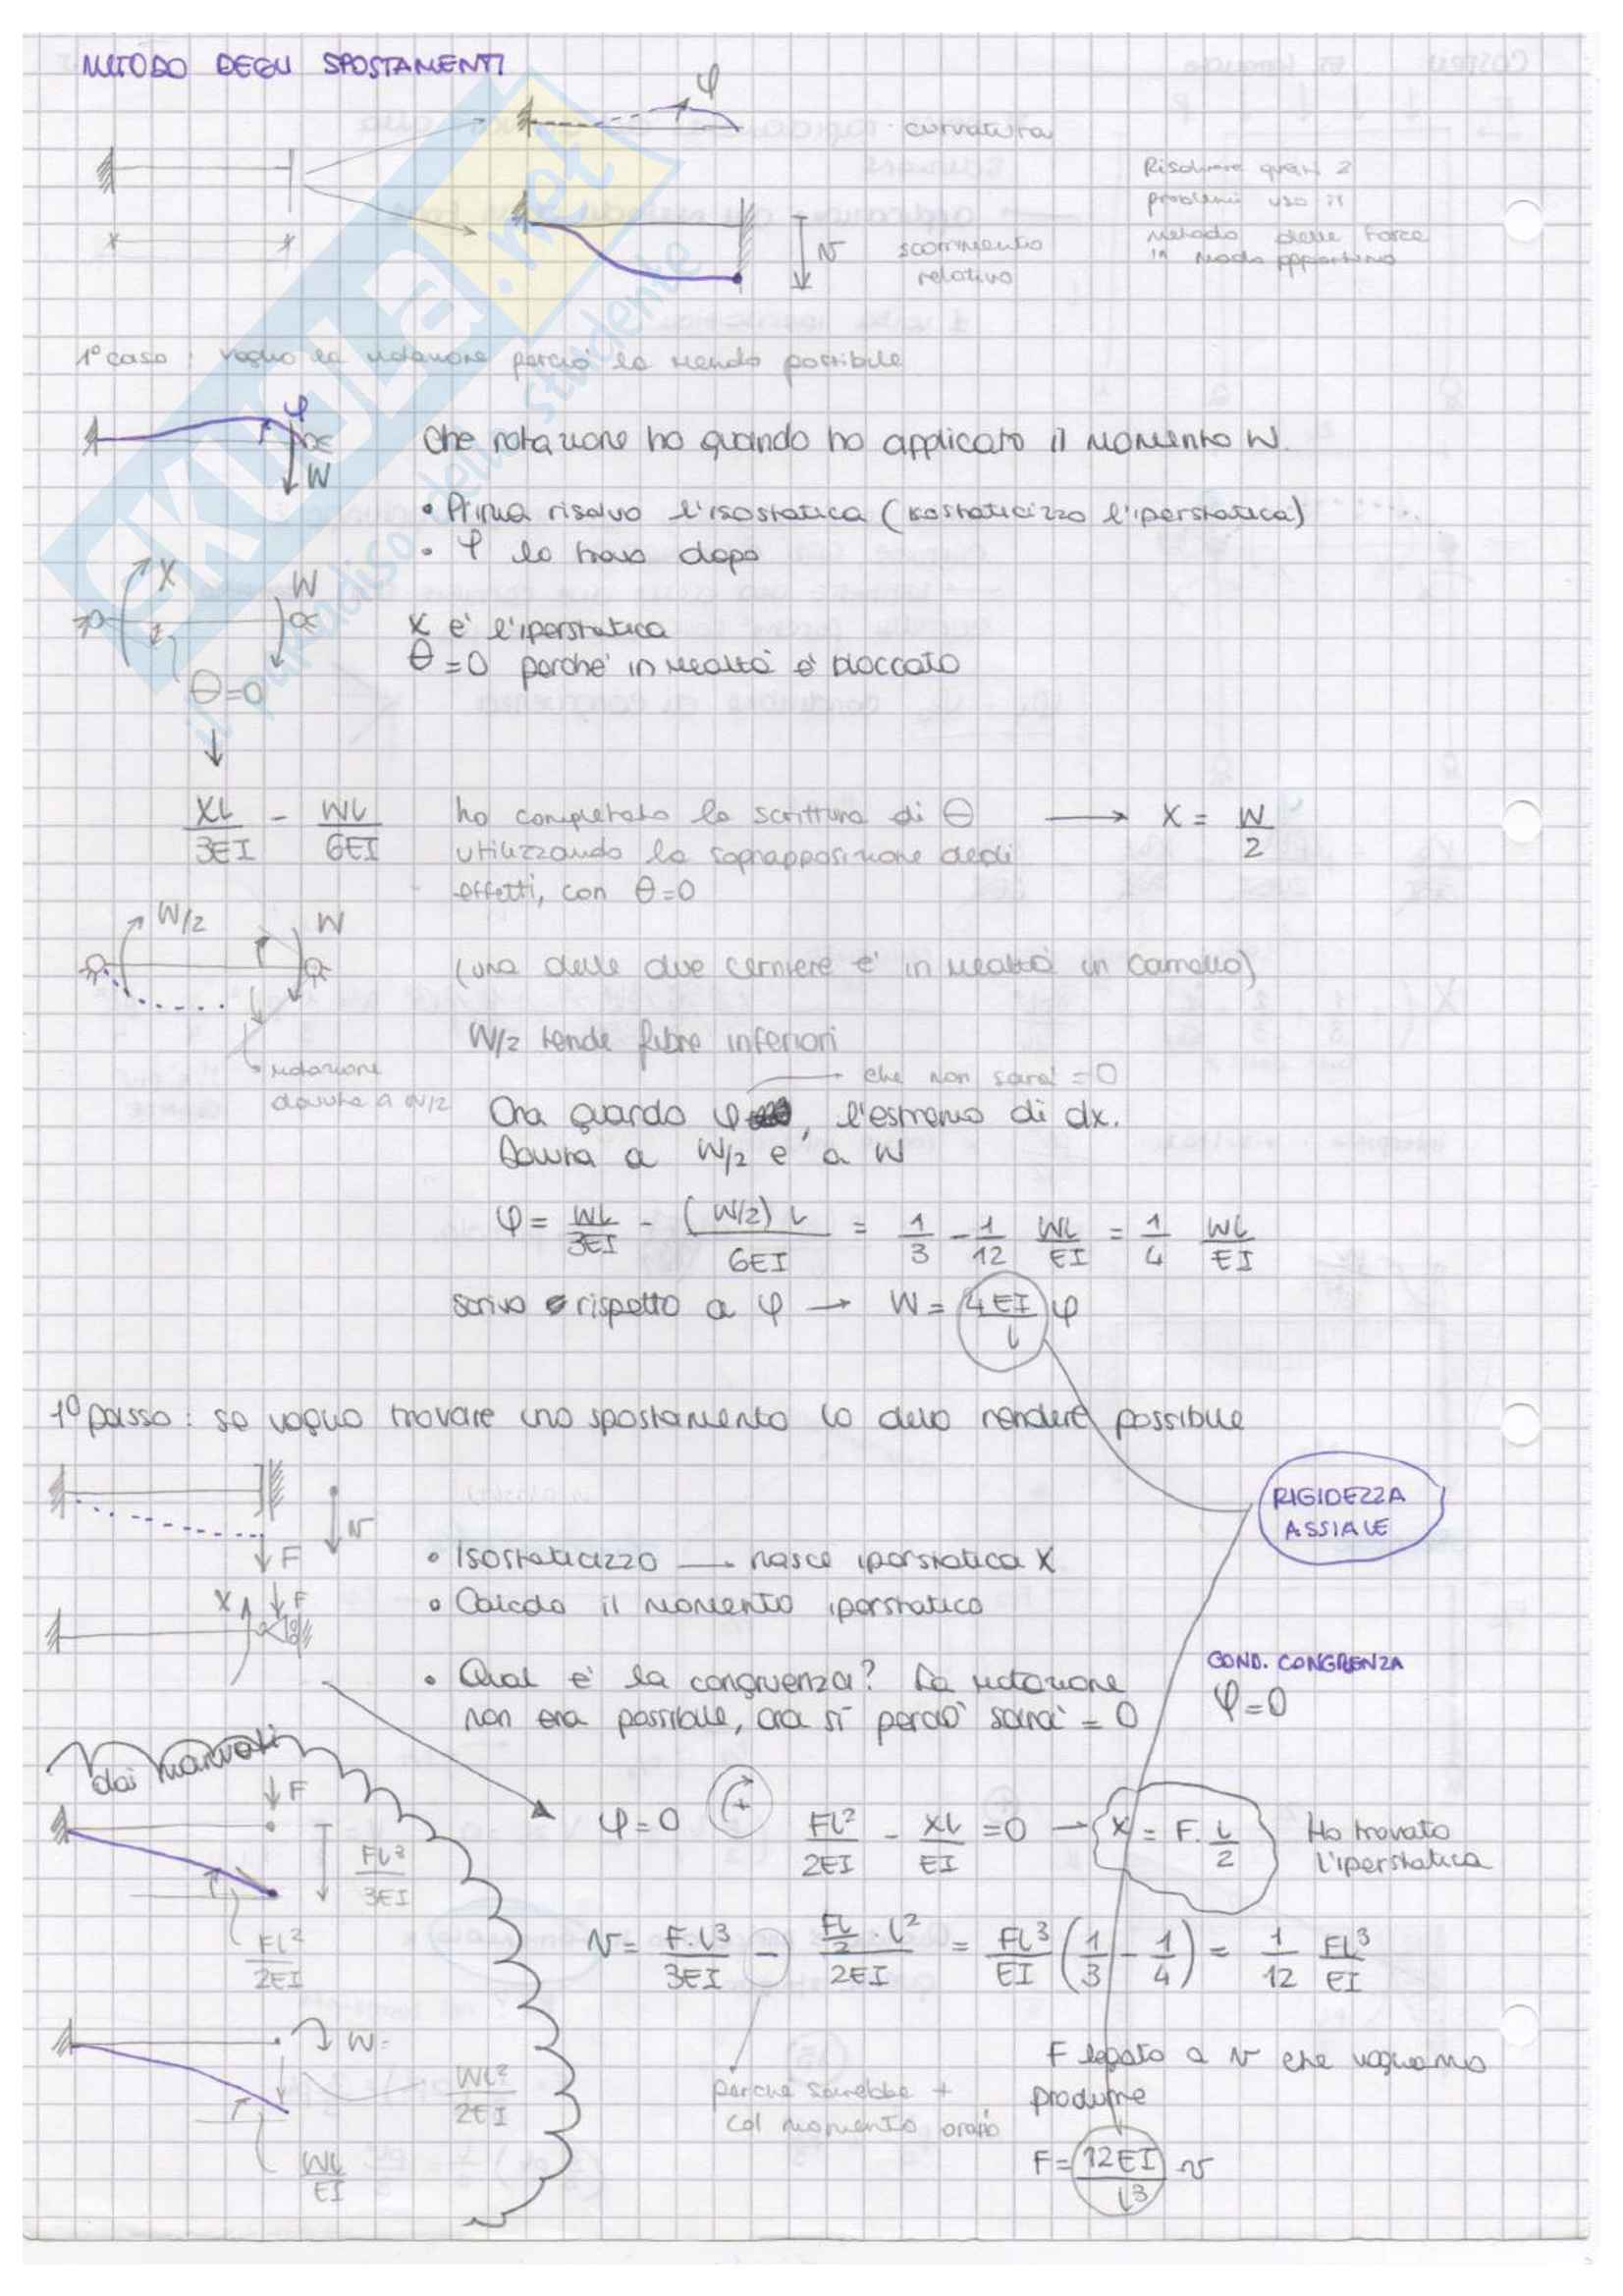 METODO DEGLI SPOSTAMENTI
φ
curvatura
Risolvere questi 2
problemi uso il
metodo delle forze
in modo opportuno
v scorrimento
relativo
1° caso: voglio la rotazione perciò la rendo possibile
φ
W
Che rotazione ho quando ho applicato il momento W.
• Prima risolvo l'isostatica (isostaticizzo l'iperstatica)
• φ lo trovo dopo
X W
X è l'iperstatica
θ=0 perché in realtà è bloccato
θ=0
↓
XL/3EI - WL/6EI
ho completato la scrittura di θ → X = W/2
utilizzando la sovrapposizione degli
effetti, con θ=0
W/2 W
(una delle due cerniere è in realtà un carrello)
W/2 tende fibre inferiori
rotazione
dovuta a W/2
che non sarà = 0
Ora guardo φ, l'estremo di dx.
Dovuta a W/2 e a W
φ = WL/3EI - (W/2)L/6EI = 1/3 - 1/12 WL/EI = 1/4 WL/EI
scrivo rispetto a φ → W = 4EI/L φ
1° passo: se voglio trovare uno spostamento lo devo rendere possibile
RIGIDEZZA
ASSIALE
v
F
• Isostaticizzo — nasce iperstatica X
X F
• Calcolo il momento iperstatico
• Qual è la congruenza? La rotazione
non era possibile, ora sì perciò sarà = 0
COND. CONGRENZA
φ=0
dai manuali
F
FL³/3EI
FL²/2EI
φ=0 + FL²/2EI - XL/EI = 0 → X = F·L/2
Ho trovato
l'iperstatica
v = F·L³/3EI - FL/2·L²/2EI = FL³/EI (1/3 - 1/4) = 1/12 FL³/EI
W=
WL²/2EI
WL/EI
perché sarebbe +
col momento orario
F legato a v che vogliamo
produrre
F = 12EI/L³ v
SKUOLA.net
il paradiso dello studente